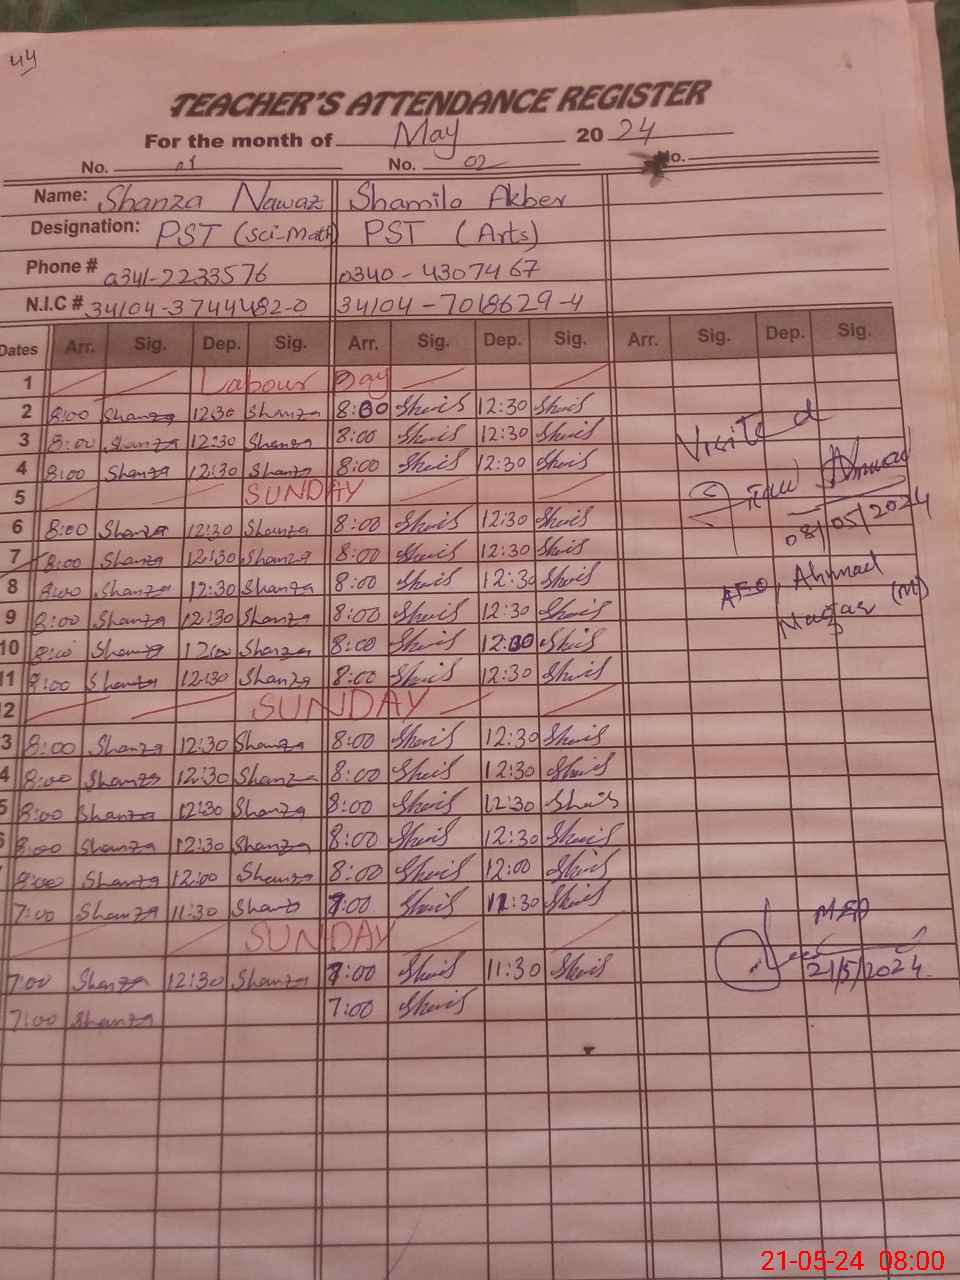 44
TEACHER'S ATTENDANCE REGISTER
For the month of May 2024
No. 01 No. 02 No.
Name: Shanza Nawaz Shamila Akber
Designation: PST (Sci-Math) PST (Arts)
Phone # 0341-2233576 0340-4307467
N.I.C # 34104-3744482-0 34104-7018629-4
Dates Arr. Sig. Dep. Sig. Arr. Sig. Dep. Sig. Arr. Sig. Dep. Sig.
1 Labour Day
2 8:00 Shanza 12:30 Shanza 8:00 12:30
3 8:00 Shanza 12:30 Shanza 8:00 12:30
Visited
4 8:00 Shanza 12:30 Shanza 8:00 12:30
Ahmad
5 SUNDAY
6 8:00 Shanza 12:30 Shanza 8:00 12:30
08/05/2024
7 8:00 Shanza 12:30 Shanza 8:00 12:30
8 8:00 Shanza 12:30 Shanza 8:00 12:30
AEO, Ahmad
9 8:00 Shanza 12:30 Shanza 8:00 12:30
Nagar (M)
10 8:00 Shanza 12:00 Shanza 8:00 12:30
11 8:00 Shanza 12:30 Shanza 8:00 12:30
12 SUNDAY
3 8:00 Shanza 12:30 Shanza 8:00 12:30
4 8:00 Shanza 12:30 Shanza 8:00 12:30
5 8:00 Shanza 12:30 Shanza 8:00 12:30
6 8:00 Shanza 12:30 Shanza 8:00 12:30
8:00 Shanza 12:00 Shanza 8:00 12:00
7:00 Shanza 11:30 Shanz 7:00 11:30
MEA
SUNDAY
7:00 Shanza 12:30 Shanza 7:00 11:30
21/5/2024
7:00 Shanza 7:00
21-05-24 08:00